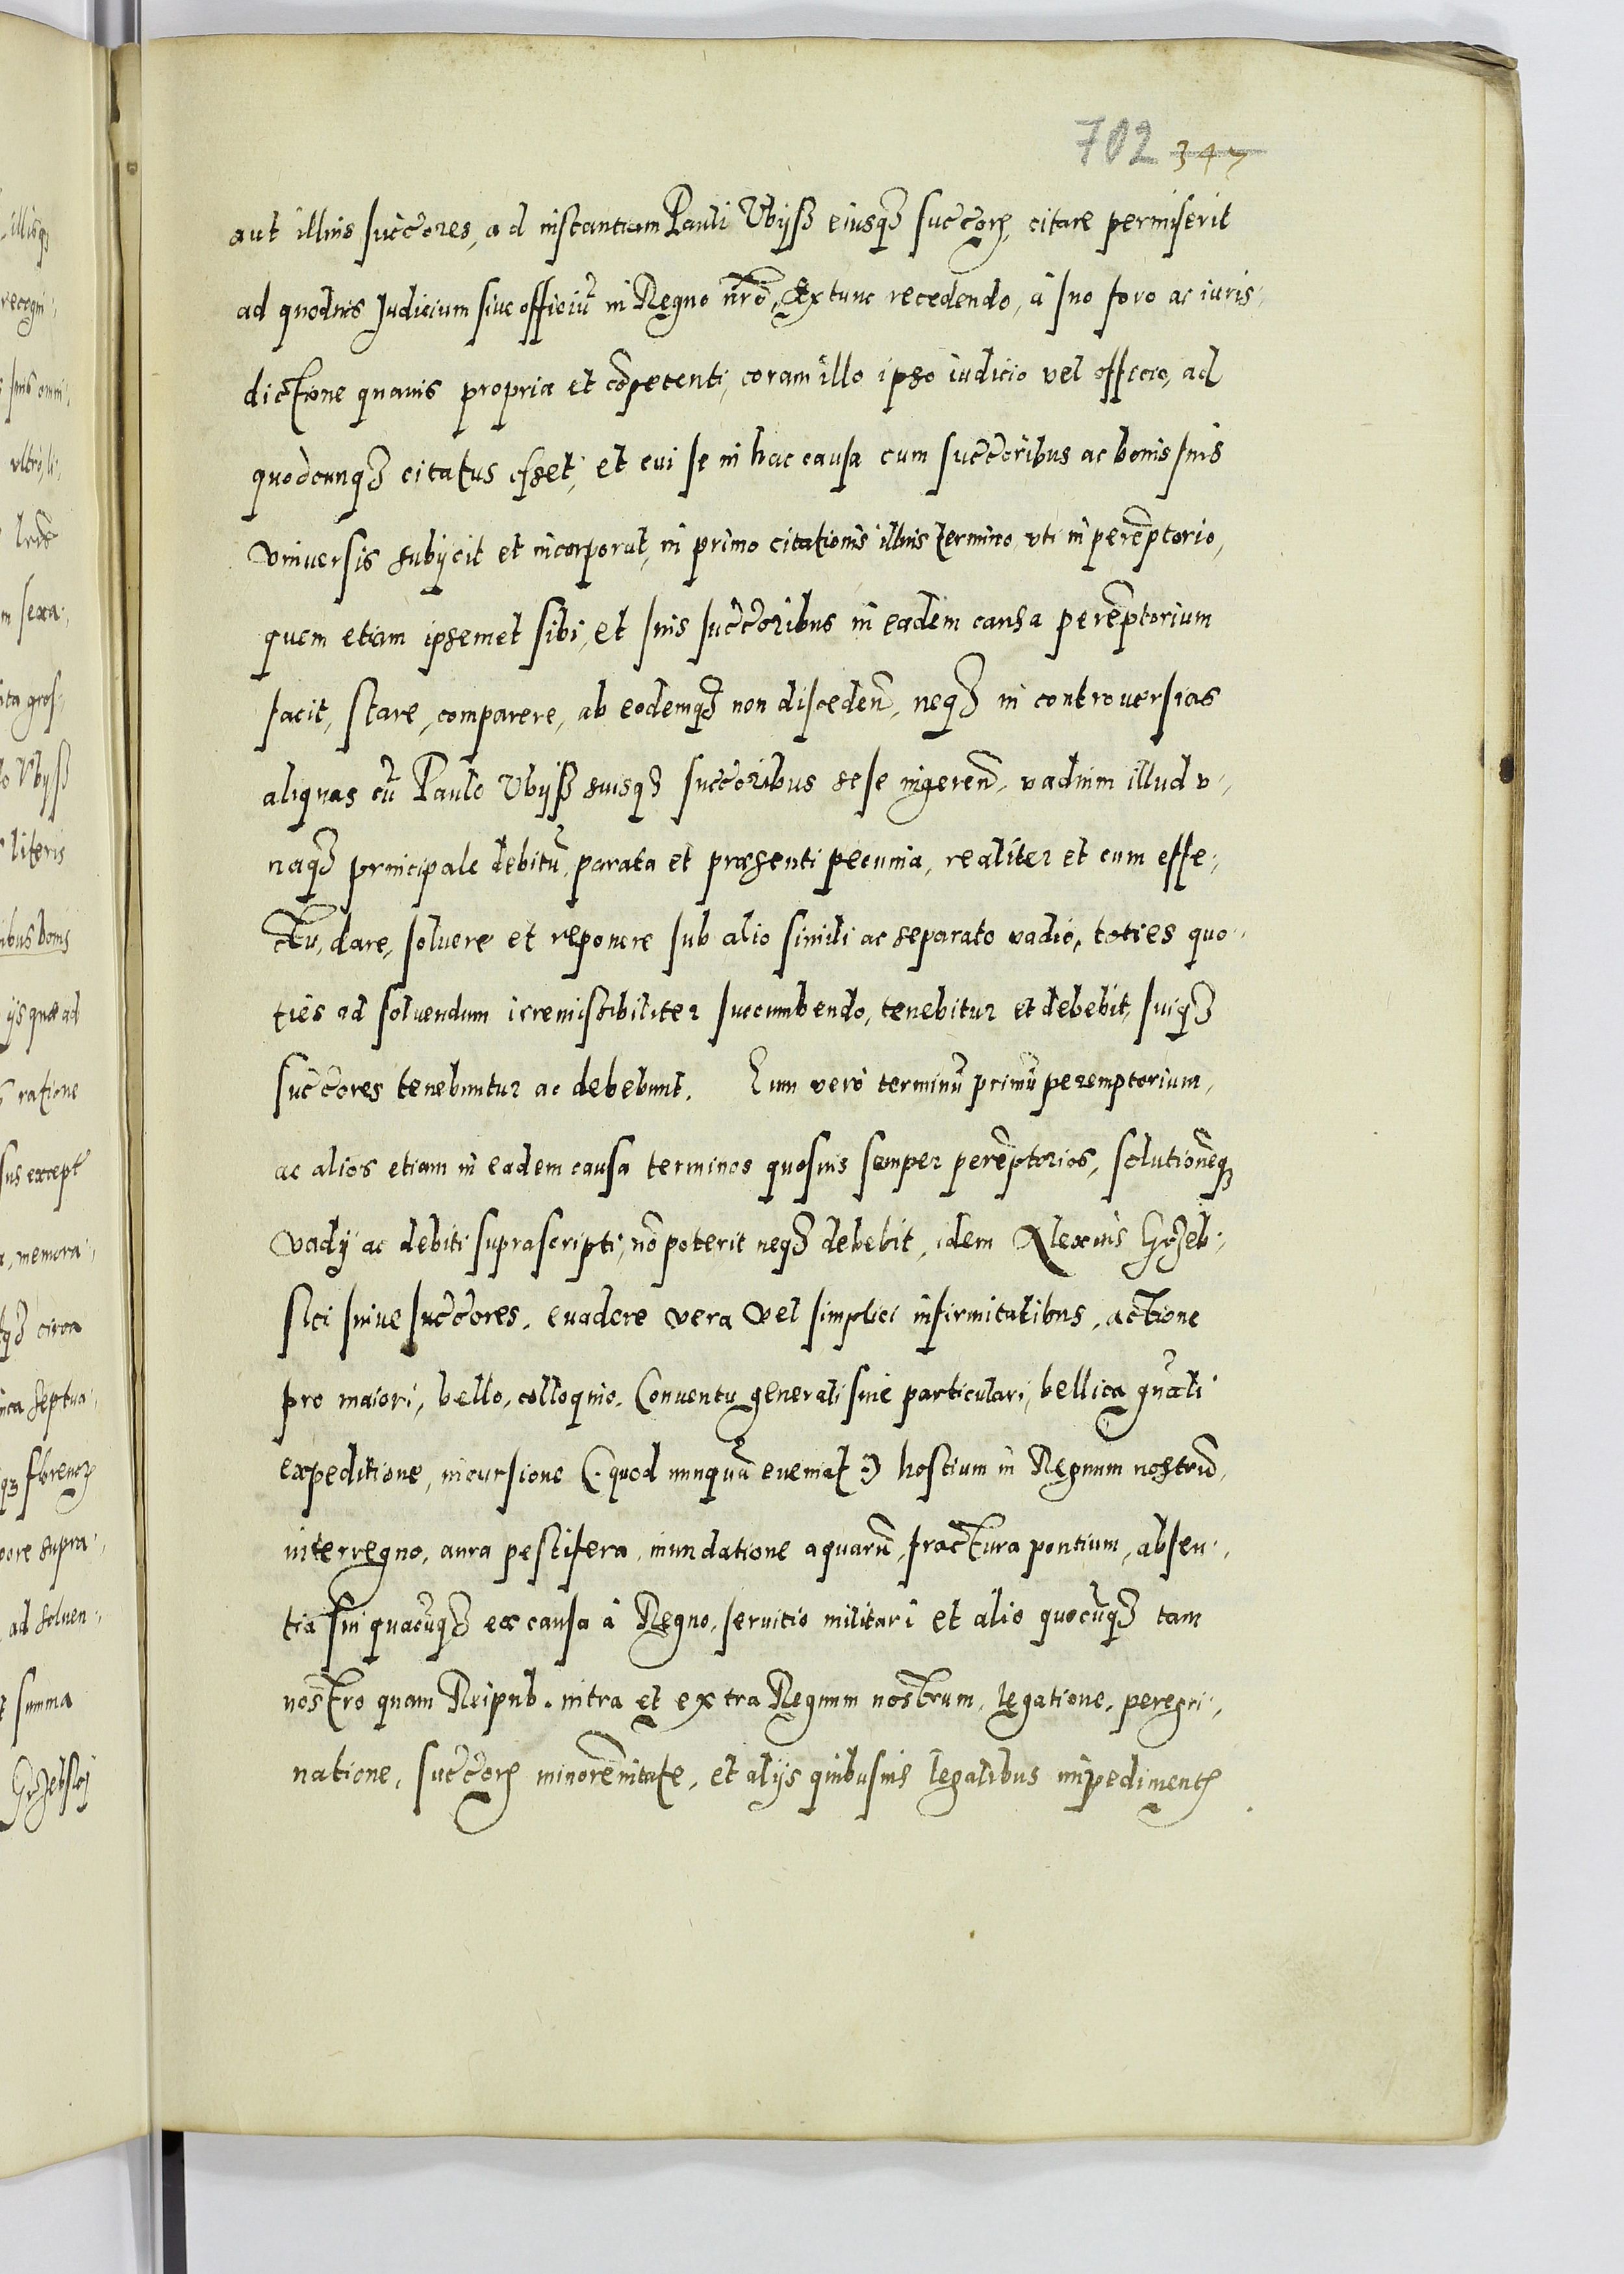 702 347
aut illius succ̃ores, ad instantiam Pauli Vbysz eiusqꝫ succ̃orꝫ, citare permiserit
ad quoduis Judicium siue officiũ in Regno nr̃o, Extunc recedendo, à suo foro ac iuris:
dictione quauis propria et cõpetenti, coram illo ipso iudicio vel officio, ad
quodcunqꝫ citatus esset, et cui se in hac causa cum succ̃oribus ac bonis suis
vniuersis subijcit et incorporat, in primo citationis illius termino, vti in perẽptorio,
quem etiam ipsemet sibi, et suis succ̃oribus in eadem causa perẽptorium
facit, stare, comparere, ab eodemqꝫ non discedeñ, neqꝫ in controuersias
aliquas cũ Paulo Vbysz suisqꝫ succ̃oribus sese ingereñ, vadium illud v:
naqꝫ principale debitũ, parata et praesenti pecunia, realiter et cum effe:
ctu, dare, soluere et reponere sub alio simili ac separato vadio, toties quo:
ties ad soluendum irremissibiliter succumbendo, tenebitur et debebit, suiqꝫ
succ̃ores tenebuntur ac debebunt. Eum verò terminũ primũ peremptorium,
ac alios etiam in eadem causa terminos quosuis semper perẽptorios, solutionẽqꝫ
vadÿ ac debiti suprascripti, nõ poterit neqꝫ debebit, idem Alexius Grzeb:
ski suiue succ̃ores, euadere vera vel simplici infirmitatibus, actione
pro maiori, bello, colloquio, Conuentu generali siue particulari, bellica gñali
expeditione, incursione (: quod nunquã eueniat :) hostium in Regnum nostrũ,
interregno, aura pestifera, inundatione aquarũ, fractura pontium, absen:
tia sui quacũqꝫ ex causa à Regno, seruitio militari et alio quocũqꝫ tam
nostro quam Reipub. intra et extra Regnum nostrum, legatione, peregri:
natione, succ̃orꝫ minorẽnitate, et alijs quibusuis legalibus impedimentꝫ.